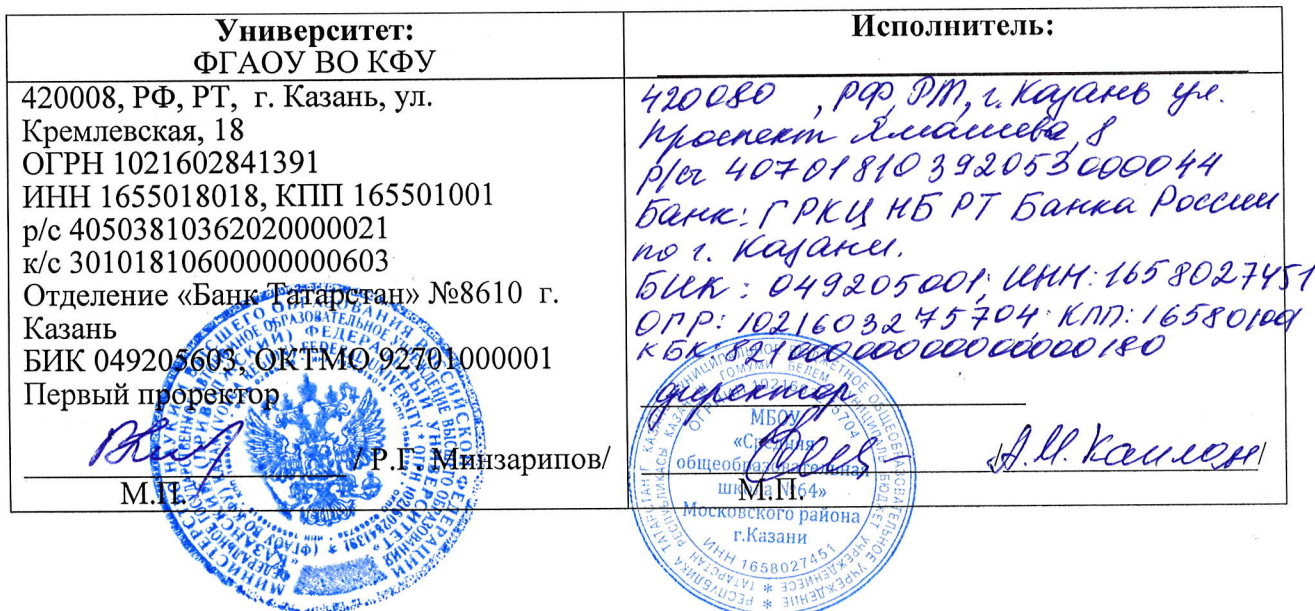 Университет:
ФГАОУ ВО КФУ
420008, РФ, РТ, г. Казань, ул.
Кремлевская, 18
ОГРН 1021602841391
ИНН 1655018018, КПП 165501001
р/с 40503810362020000021
к/с 30101810600000000603
Отделение «Банк Татарстан» №8610 г.
Казань
БИК 049205603, ОКТМО 92701000001
Первый проректор
/ Р.Г. Минзарипов/
М.П.
Исполнитель:
420080, РФ, РТ, г. Казань ул.
проспект Ямашева, 8
р/сч 40701810392053000044
Банк: ГРКЦ НБ РТ Банка России
по г. Казани.
БИК: 049205001; ИНН: 1658027451
ОГР: 1021603275704; КПП: 165801001
КБК
директор
/А.М. Каплан/
М.П.
МБОУ
«Средняя
общеобразовательная
школа №64»
Московского района
г.Казани
ИНН 1658027451